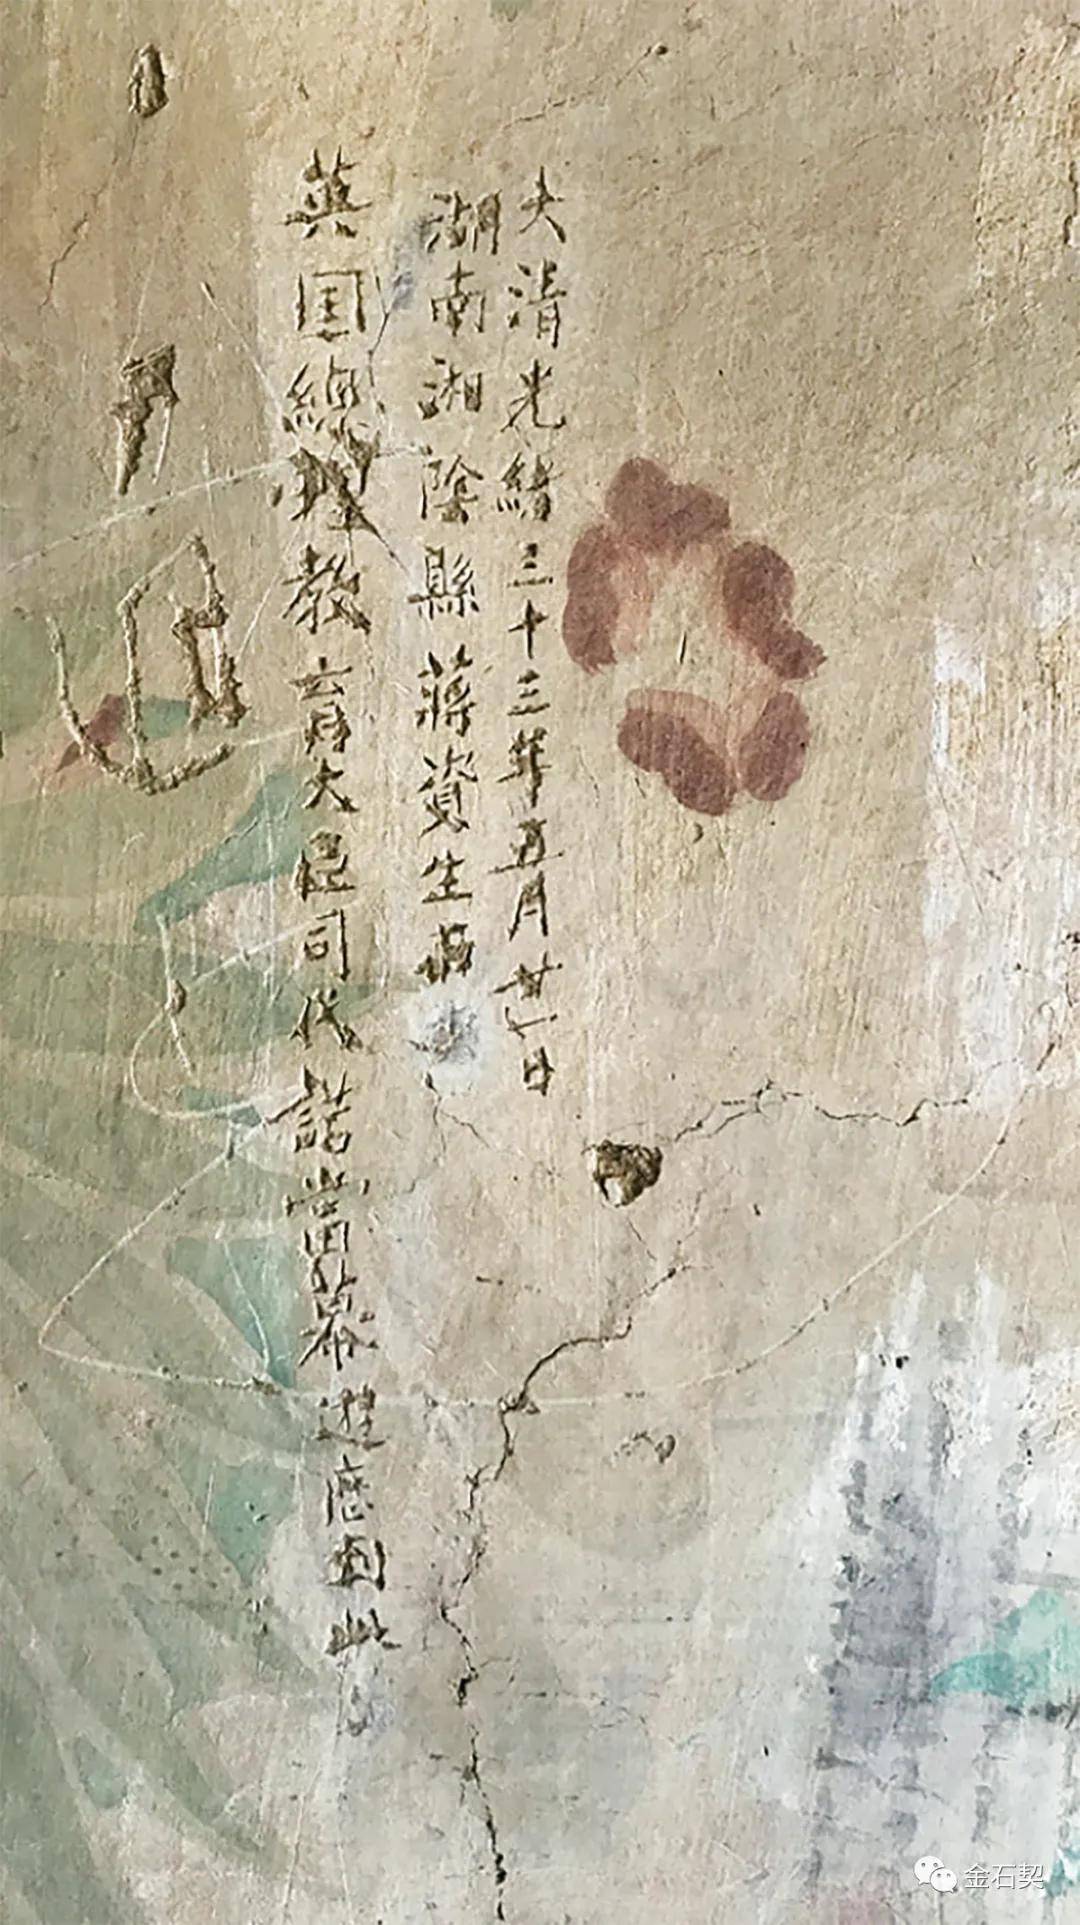 大清光緒三十三年五月廿一日
湖南湘陰縣蔣資生
英国總理教育大臣司代諾當幕遊歷到此
金石契